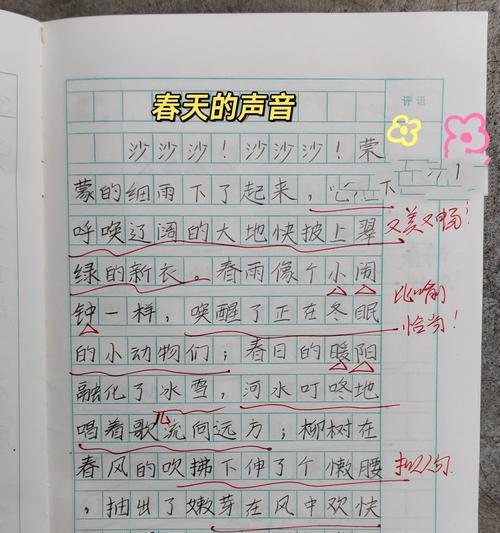 春天的声音
评语
沙沙沙！沙沙沙！蒙
蒙的细雨下了起来，它在下
呼唤辽阔的大地快披上翠
又美又畅！
绿的新衣。春雨像个小闹
比喻
钟一样，唤醒了正在冬眠
恰当！
的小动物们；春日的暖阳
融化了冰雪，河水叮咚地
唱着歌儿流向远方；柳树在
春风的吹拂下伸了个懒腰
拟人句
，抽出了嫩芽在风中欢快